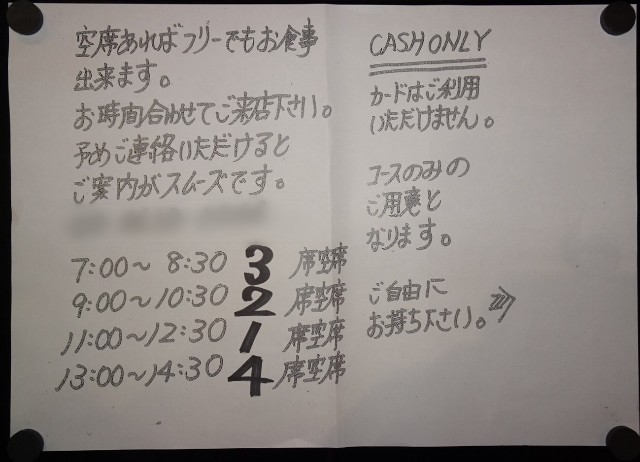 空席あればフリーでもお食事
出来ます。
お時間合わせてご来店下さい。
予めご連絡いただけると
ご案内がスムーズです。
7:00～8:30 3 席空席
9:00～10:30 2 席空席
11:00～12:30 1 席空席
13:00～14:30 4 席空席
CASH ONLY
カードはご利用
いただけません。
コースのみの
ご用意と
なります。
ご自由に
お持ち下さい。